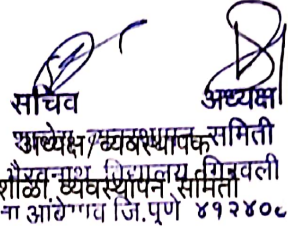 सचिव अध्यक्ष
अध्यक्ष/व्यवस्थापक समिती
भैरवनाथ विद्यालय गिरवली
शाळा व्यवस्थापन समिती
जि.पुणे ४१२४०८